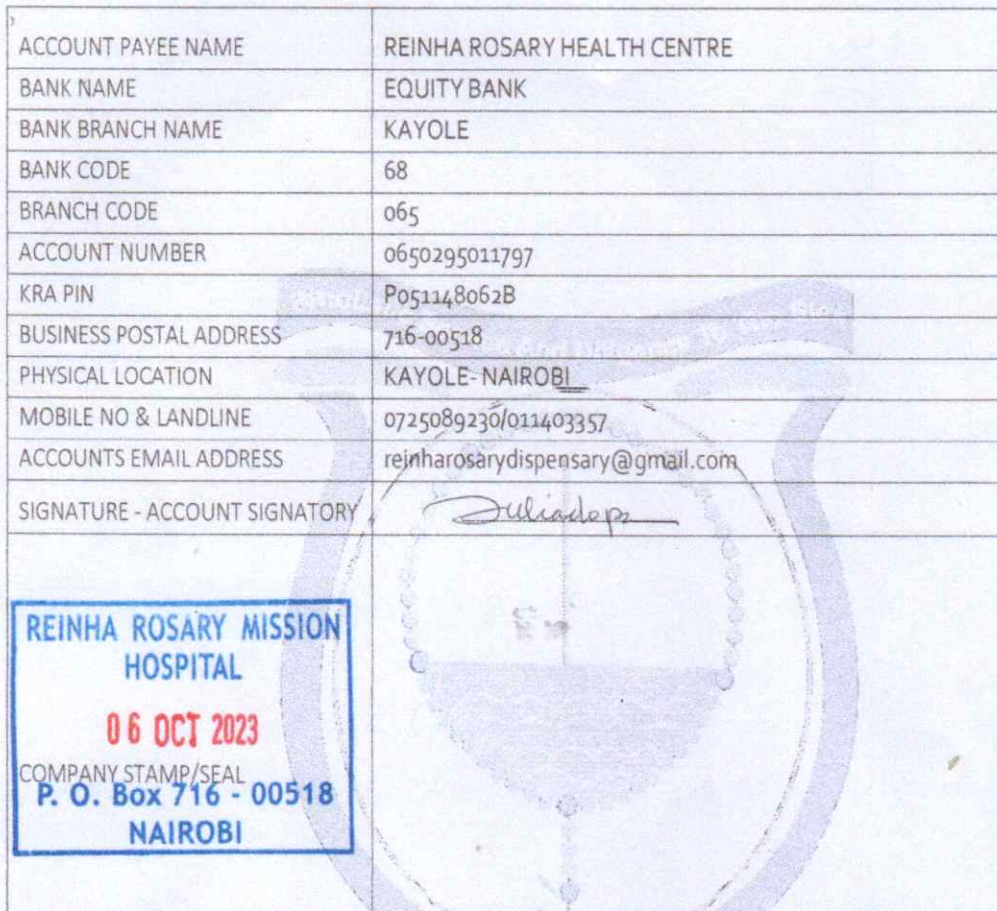 ACCOUNT PAYEE NAME REINHA ROSARY HEALTH CENTRE
BANK NAME EQUITY BANK
BANK BRANCH NAME KAYOLE
BANK CODE 68
BRANCH CODE 065
ACCOUNT NUMBER 0650295011797
KRA PIN P051148062B
BUSINESS POSTAL ADDRESS 716-00518
PHYSICAL LOCATION KAYOLE- NAIROBI
MOBILE NO & LANDLINE 0725089230/011403357
ACCOUNTS EMAIL ADDRESS reinharosarydispensary@gmail.com
SIGNATURE - ACCOUNT SIGNATORY
REINHA ROSARY MISSION
HOSPITAL
06 OCT 2023
COMPANY STAMP/SEAL
P. O. Box 716 - 00518
NAIROBI